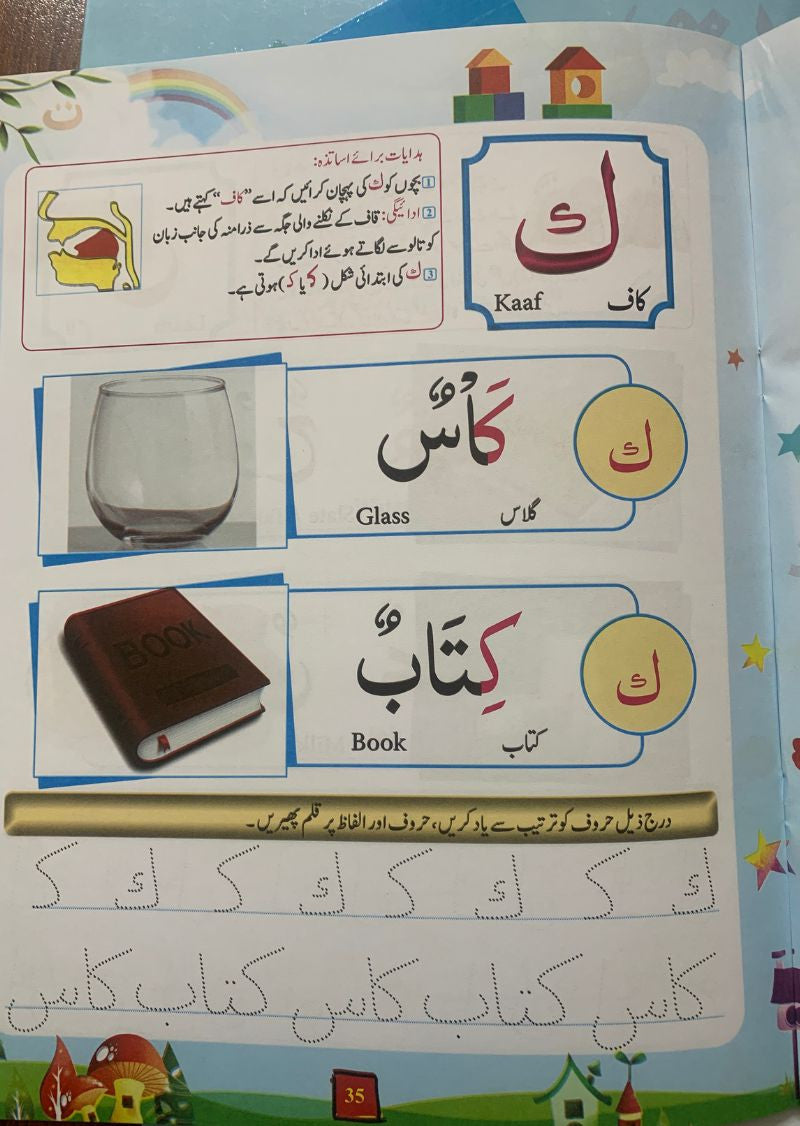 ت
ہدایات برائے اساتذہ:
1 بچوں کو ك کی پہچان کرائیں کہ اسے "کاف" کہتے ہیں۔
2 ادائیگی: قاف کے نکلنے والی جگہ سے ذرا منہ کی جانب زبان
کو تالو سے لگاتے ہوئے ادا کریں گے۔
3 ك کی ابتدائی شکل (کیا کـ) ہوتی ہے۔
ك
Kaaf کاف
كَاْسٌ
ك
Glass گلاس
BOOK
كِتَابٌ
ك
Book کتاب
درج ذیل حروف کو ترتیب سے یاد کریں، حروف اور الفاظ پر قلم پھیریں۔
ك کـ ك کـ ك کـ ك کـ
کاس کتاب کاس کتاب کاس
35